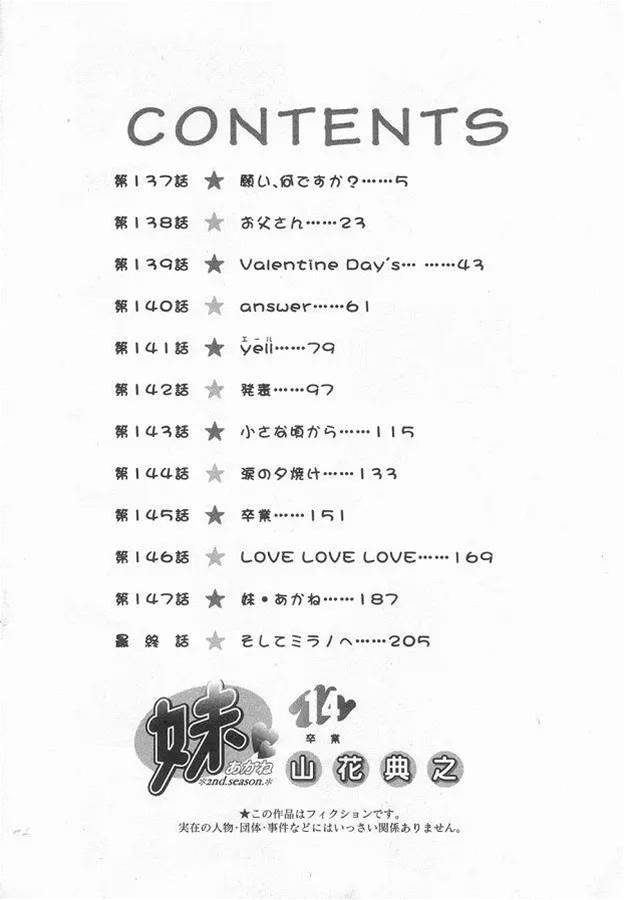 CONTENTS
第137話 ★ 願い、何ですか?……5
第138話 ★ お父さん……23
第139話 ★ Valentine Day's… ……43
第140話 ★ answer……61
エール
第141話 ★ yell……79
第142話 ★ 発表……97
第143話 ★ 小さな頃から……115
第144話 ★ 涙の夕焼け……133
第145話 ★ 卒業……151
第146話 ★ LOVE LOVE LOVE……169
第147話 ★ 妹・あかね……187
最終話 ★ そしてミラノへ……205
妹
あかね
*2nd.season.*
14
卒業
山花典之
★この作品はフィクションです。
実在の人物・団体・事件などにはいっさい関係ありません。